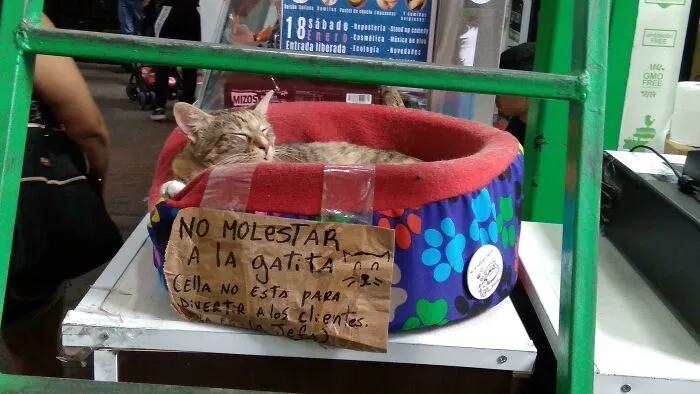 18 Sábado
Enero
Entrada liberada
Repostería · Stand up comedy
Cosmética · Música en vivo
Ecología · Novedades
MIZOS
FREE
GMO
FREE
NO MOLESTAR
A la gatita
Ella no está para
Divertir a los clientes.
es la Jefa